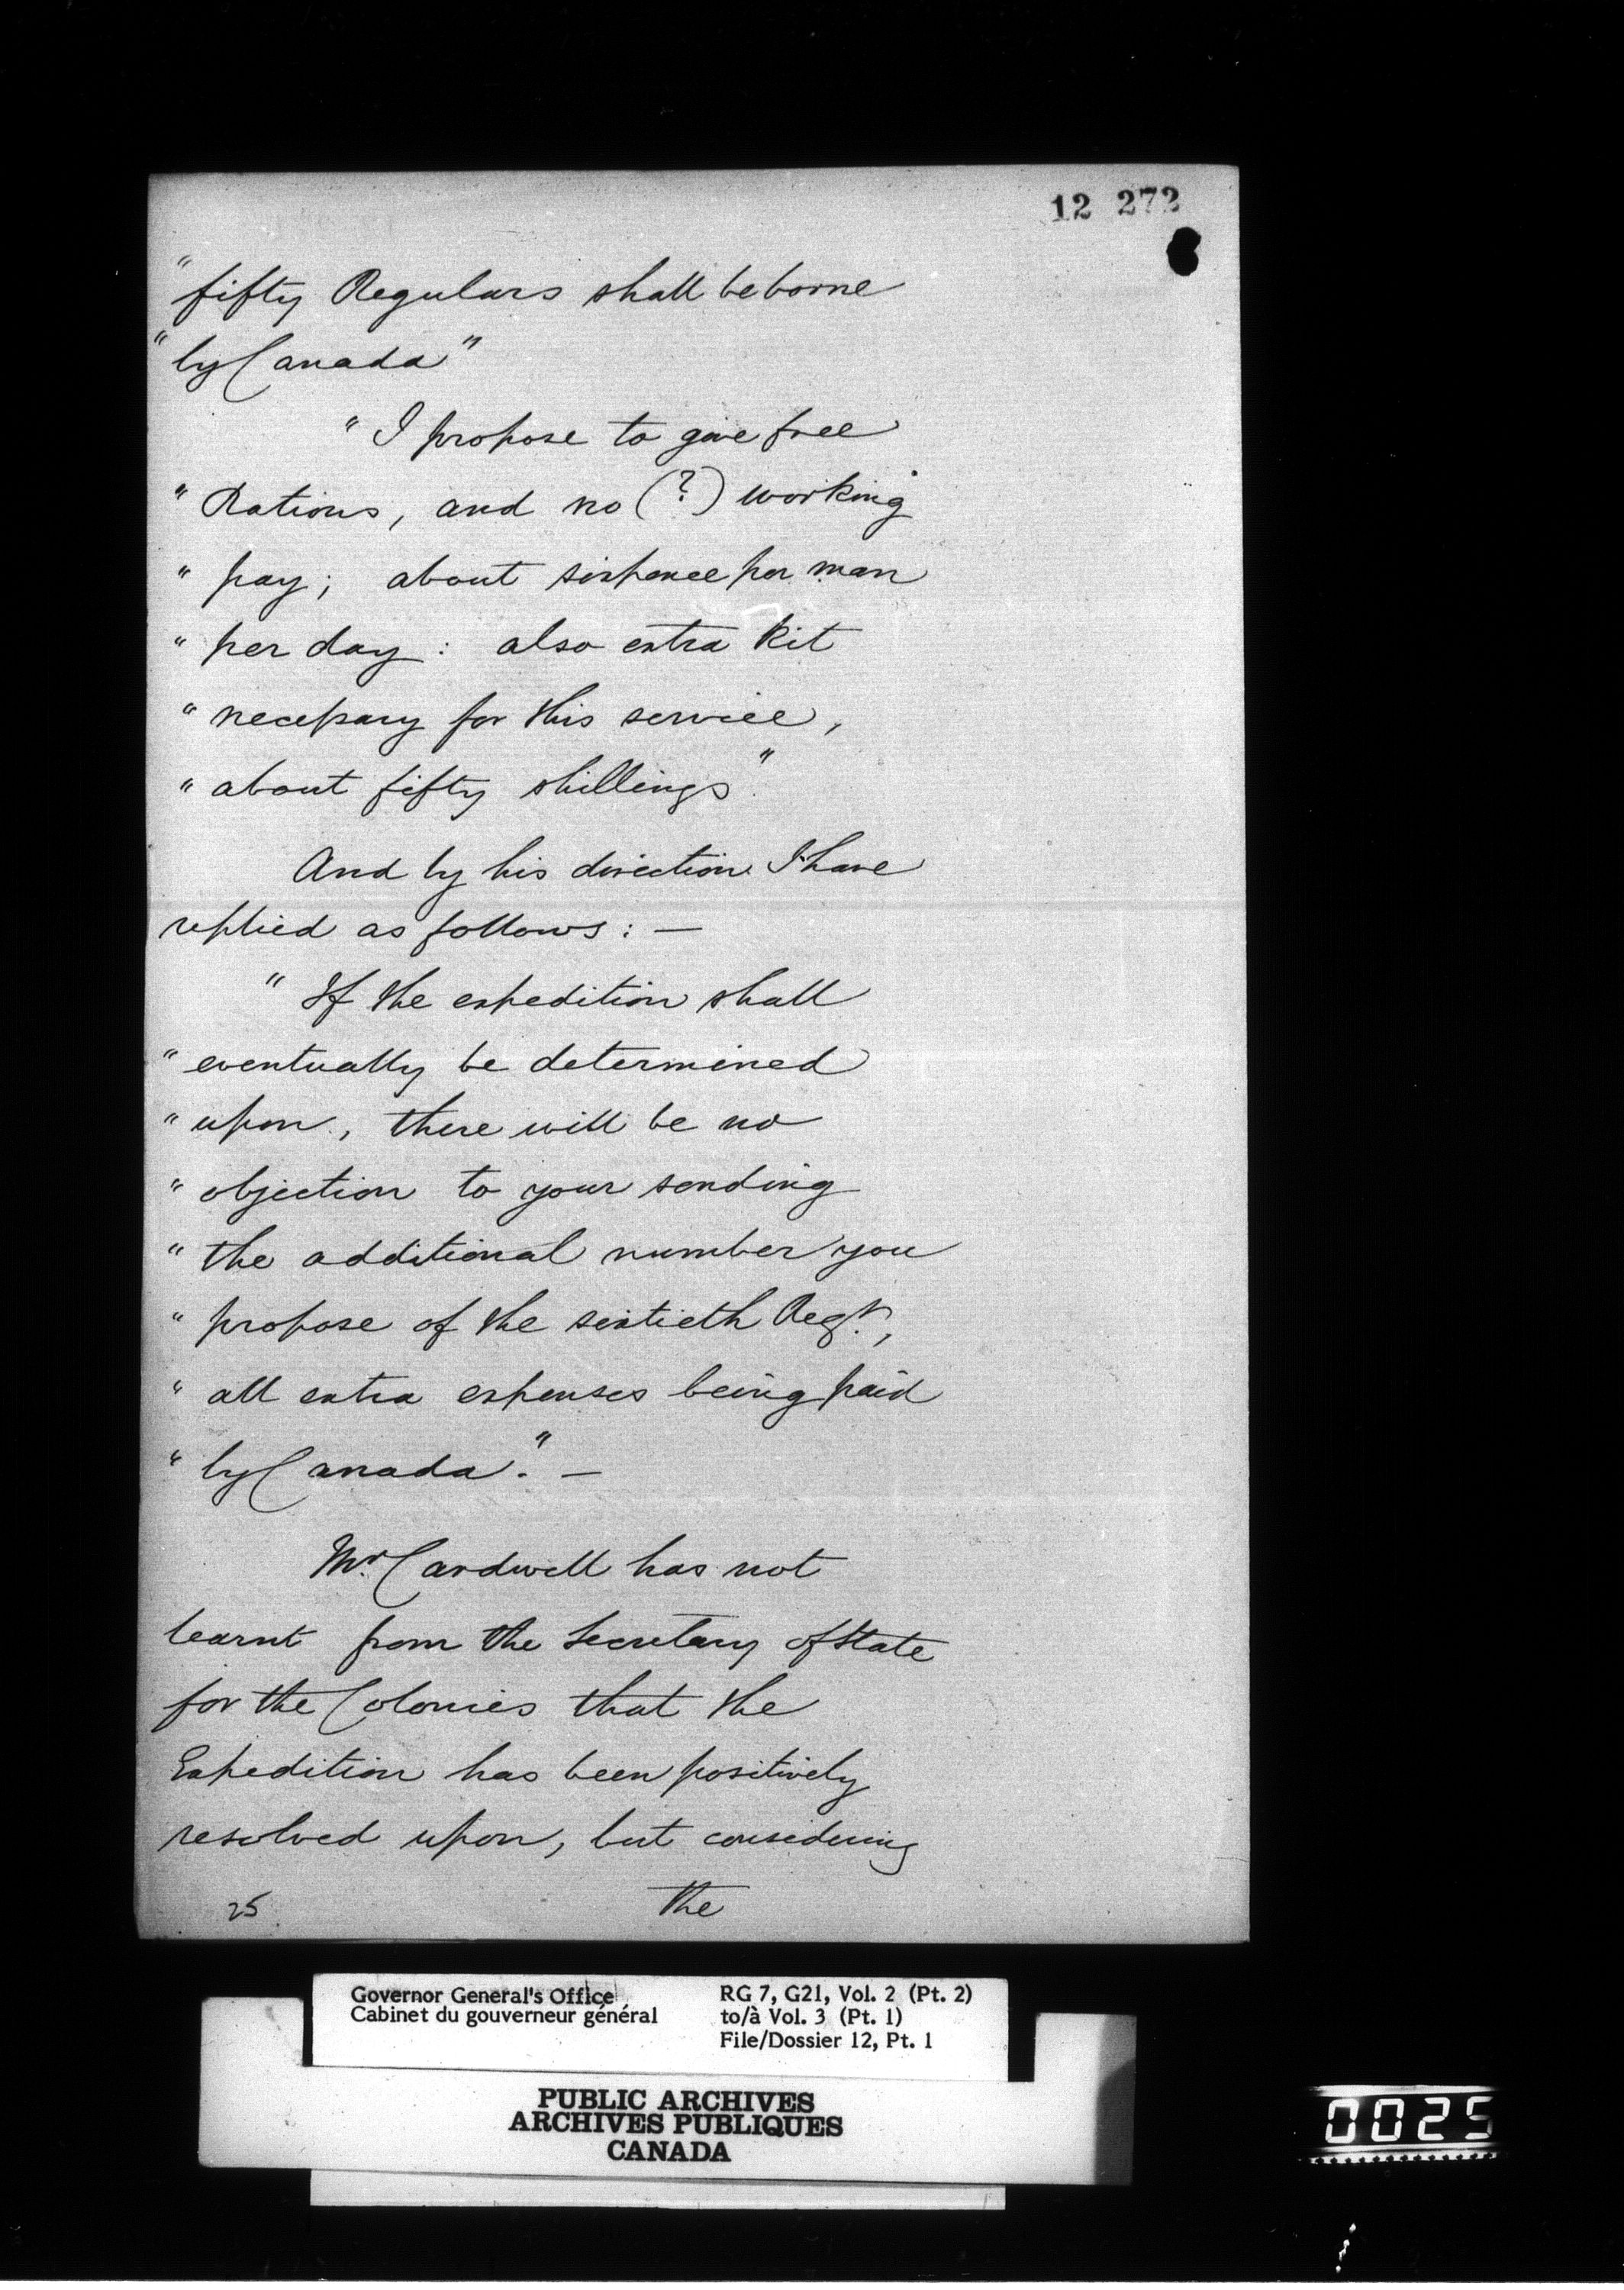 12 272
"fifty Regulars shall be borne
"by Canada"
"I propose to give free
"Rations, and no (?) working
"pay; about sixpence per man
"per day: also extra kit
"necessary for this service,
"about fifty shillings".
And by his direction I have
replied as follows:—
"If the expedition shall
"eventually be determined
"upon, there will be no
"objection to your sending
"the additional number you
"propose of the sixtieth Regt.,
"all extra expenses being paid
"by Canada."—
Mr. Cardwell has not
learnt from the Secretary of State
for the Colonies that the
Expedition has been positively
resolved upon, but considering
the
25
Governor General's Office
Cabinet du gouverneur général
RG 7, G21, Vol. 2 (Pt. 2)
to/à Vol. 3 (Pt. 1)
File/Dossier 12, Pt. 1
PUBLIC ARCHIVES
ARCHIVES PUBLIQUES
CANADA
0025